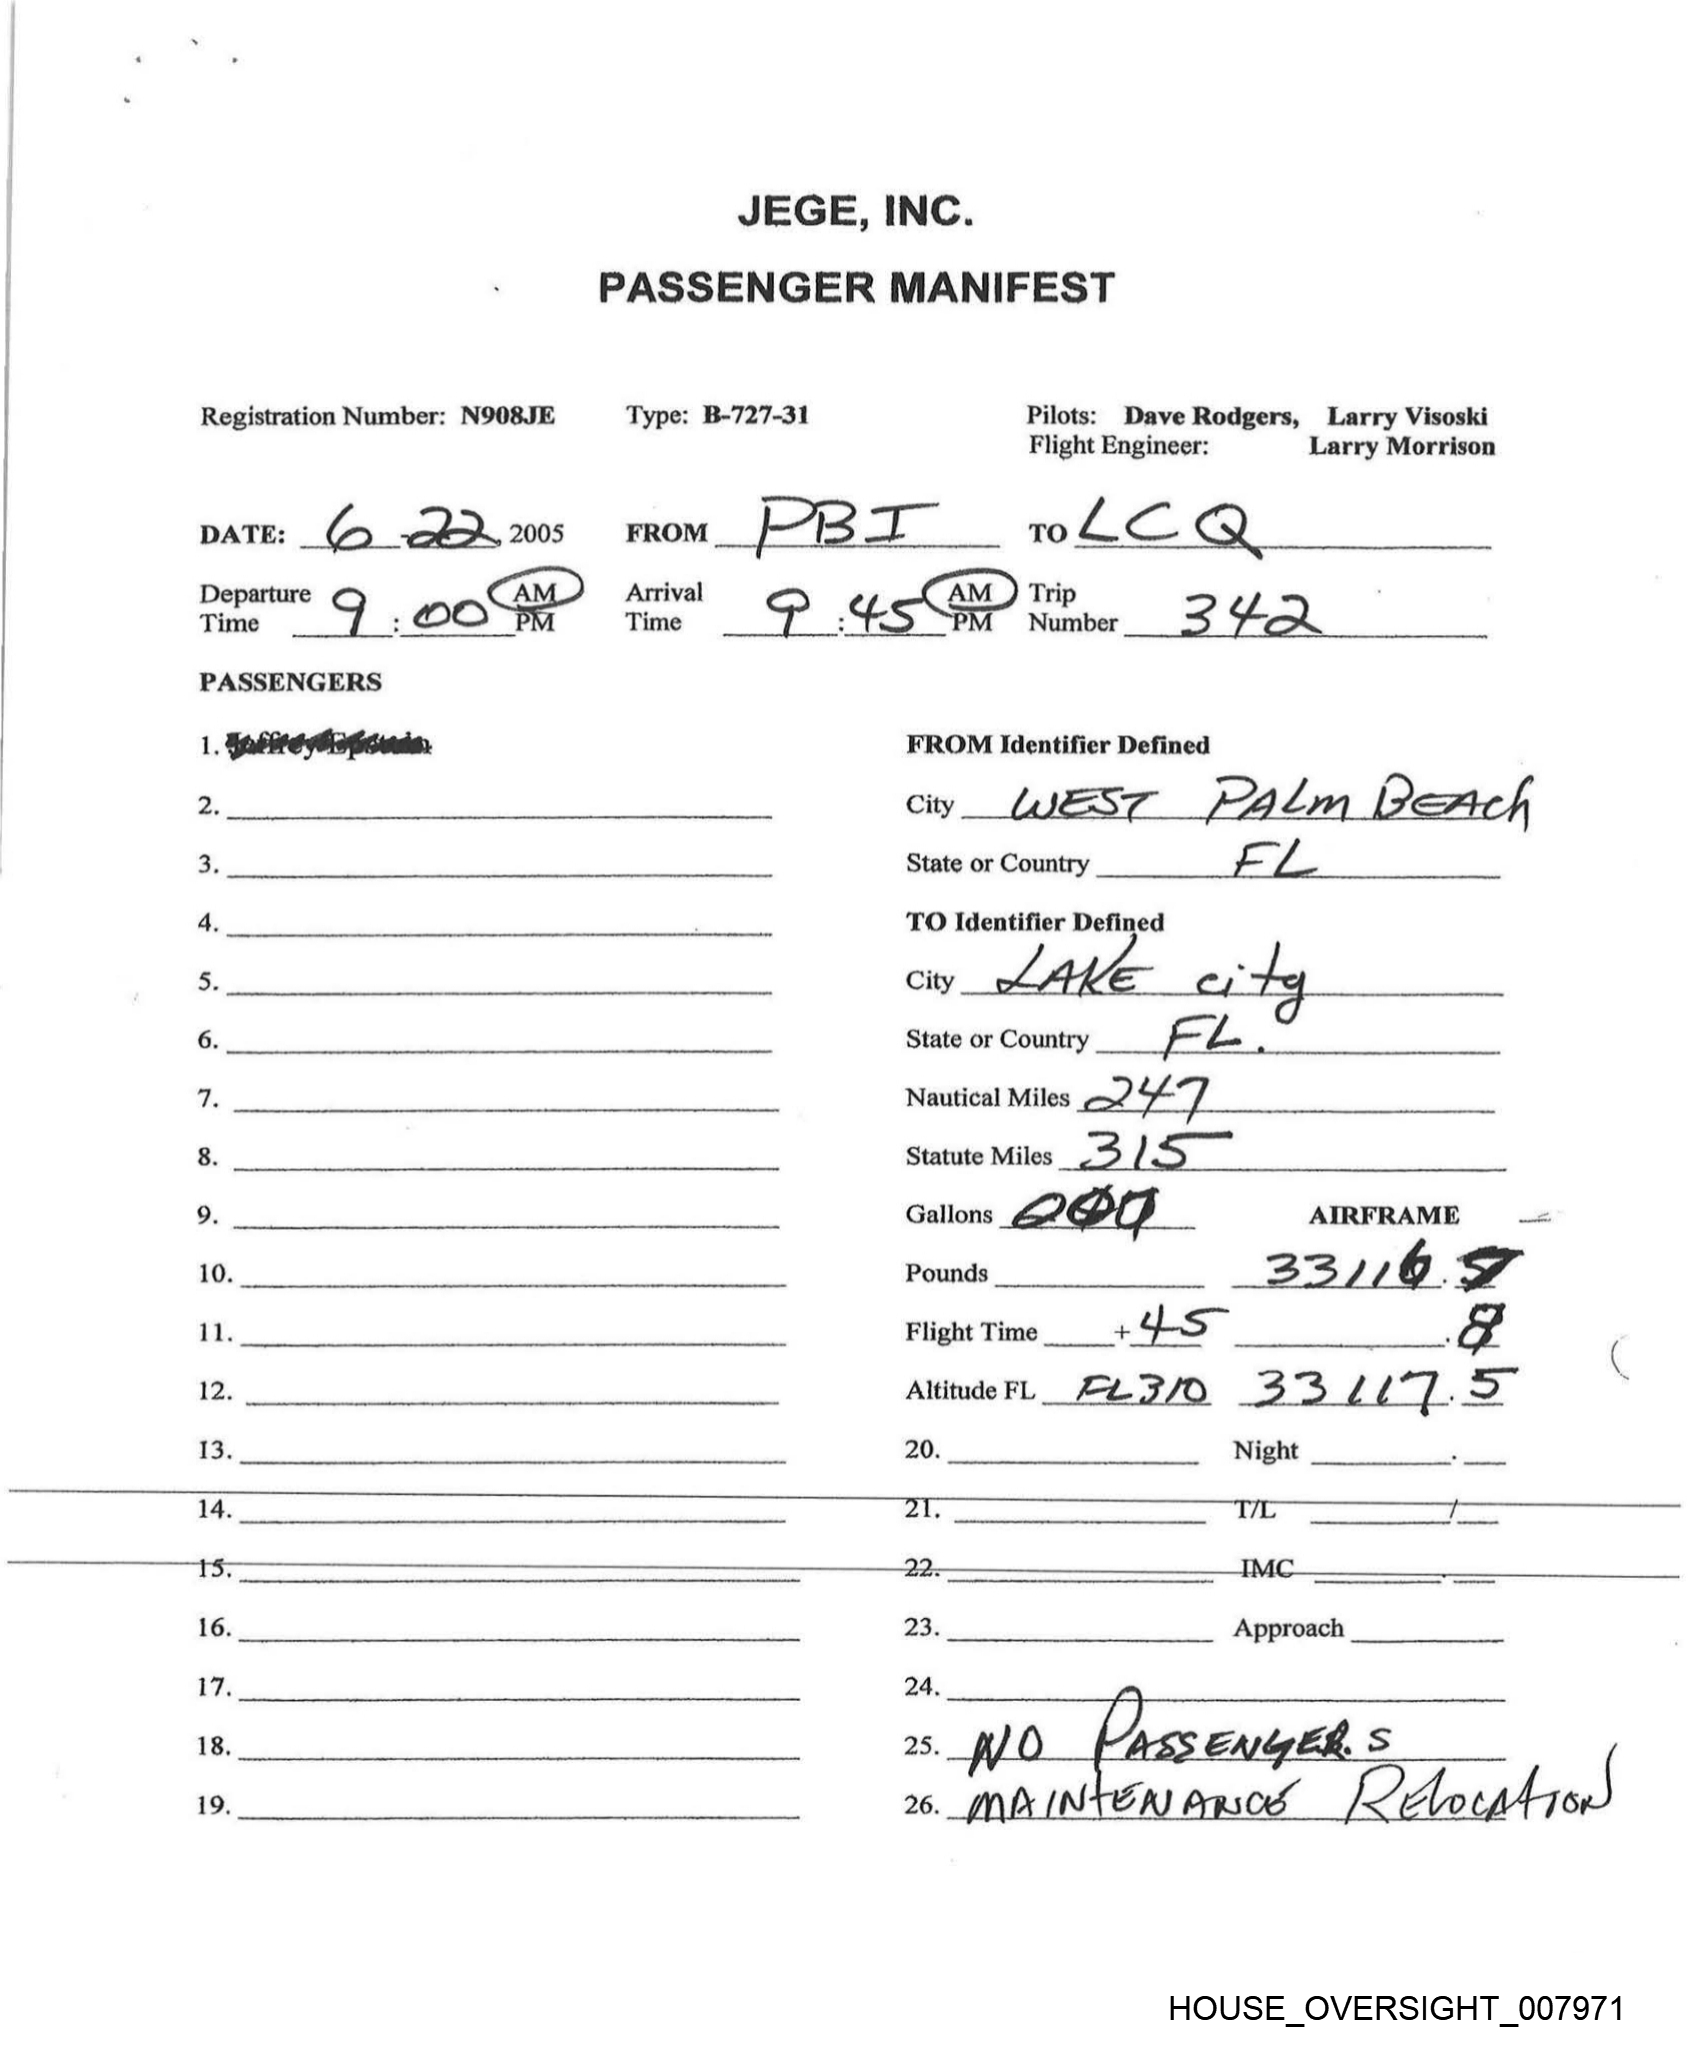 JEGE, INC.
PASSENGER MANIFEST
Registration Number: N908JE Type: B-727-31 Pilots: Dave Rodgers, Larry Visoski
Flight Engineer: Larry Morrison
DATE: 6-22, 2005 FROM PBI TO LCQ
Departure Time 9:00 AM PM Arrival Time 9:45 AM PM Trip Number 342
PASSENGERS
1. Jeffrey Epstein FROM Identifier Defined
2. City WEST PALM BEACh
3. State or Country FL
4. TO Identifier Defined
5. City LAKE city
6. State or Country FL.
7. Nautical Miles 247
8. Statute Miles 315
9. Gallons AIRFRAME
10. Pounds 33116.
11. Flight Time +45 .8
12. Altitude FL FL310 33117.5
13. 20. Night .
14. 21. T/L /
15. 22. IMC .
16. 23. Approach
17. 24.
18. 25. NO PASSENGERS
19. 26. MAINTENANCE RELOCATION
HOUSE_OVERSIGHT_007971